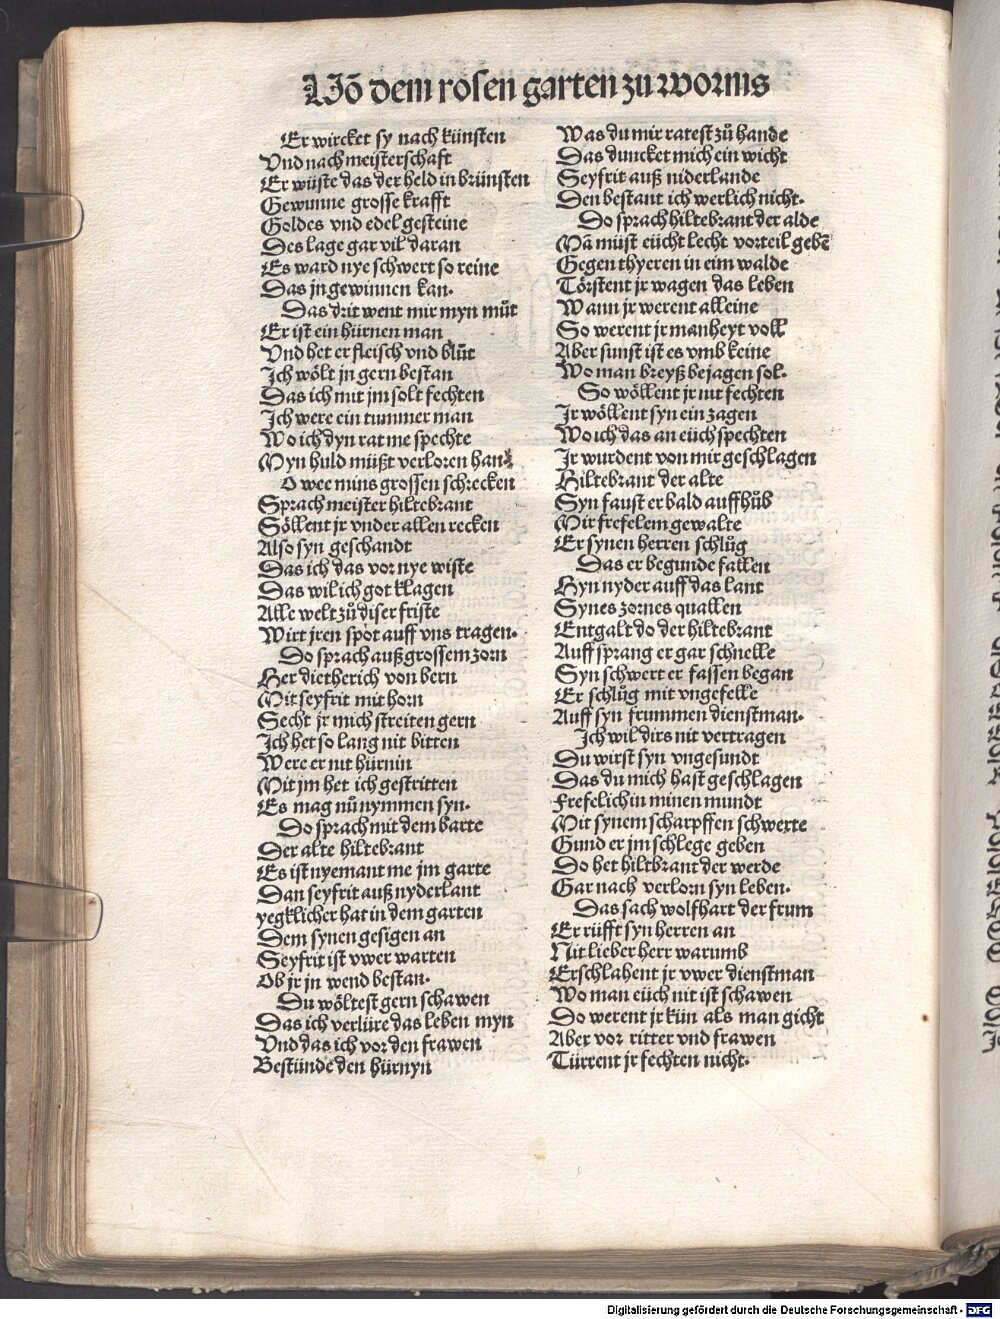 Võ dem rosen garten zů worms
Er wircket sy nach künsten
Vnd nach meisterschafft
Er wüste das der held in brünsten
Gewunne grosse krafft
Goldes vnd edel gesteine
Des lage gar vil daran
Es ward nye schwert so reine
Das jn gewinnen kan.
Das drit went mir myn můt
Er ist ein hürnen man
Vnd het er fleisch vnd blůt
Ich wölt jn gern bestan
Das ich mit jm solt fechten
Ich were ein tummer man
Wo ich dyn rat me spechte
Myn huld müßt verloren han
O wee mins grossen schrecken
Sprach meister hiltebrant
Söllent jr vnder allen recken
Also syn geschandt
Das ich das vor nye wiste
Das wil ich got klagen
Alle welt zů diser friste
Wirt jren spot auff vns tragen.
Do sprach auß grossem zorn
Her dietherich von bern
Mit seyfrit mit horn
Secht jr mich streiten gern
Ich het so lang nit bitten
Were er nit hürnin
Mit jm het ich gestritten
Es mag nů nymmen syn.
Do sprach mit dem barte
Der alte hiltebrant
Es ist nyemant me jm garte
Dan seyfrit auß nyderlant
yegklicher hat in dem garten
Dem synen gesigen an
Seyfrit ist vwer warten
Ob jr jn wend bestan.
Du wöltest gern schawen
Das ich verlüre das leben myn
Vnd das ich vor den frawen
Bestünde den hürnyn
Was du mir ratest zů hande
Das duncket mich ein wicht
Seyfrit auß niderlande
Den bestant ich werlich nicht.
Do sprach hiltebrant der alde
Mã müst eücht lecht vorteil gebẽ
Gegen thyeren in eim walde
Törstent jr wagen das leben
Wann jr werent alleine
So werent jr manheyt voll
Aber sunst ist es vmb keine
Wo man breyß bejagen sol.
So wöllent jr nit fechten
Ir wöllent syn ein zagen
Wo ich das an eüch spechten
Ir wurdent von mir geschlagen
Hiltebrant der alte
Syn faust er bald auffhůb
Mit frefelem gewalte
Er synen herren schlůg
Das er begunde fallen
Hyn nyder auff das lant
Synes zornes quallen
Entgalt do der hiltebrant
Auff sprang er gar schnelle
Syn schwert er fassen began
Er schlůg mit vngefelle
Auff syn frummen dienstman.
Ich wil dirs nit vertragen
Du wirst syn vngesundt
Das du mich hast geschlagen
Frefelich in minen mundt
Mit synem scharpffen schwerte
Gund er jm schlege geben
Do het hiltbrant der werde
Gar nach verlorn syn leben.
Das sach wolfhart der frum
Er rüfft syn herren an
Nit lieber herr warumb
Erschlahent jr vwer dienstman
Wo man eüch nit ist schawen
Do werent jr kün als man gicht
Aber vor ritter vnd frawen
Türrent jr fechten nicht.
Digitalisierung gefördert durch die Deutsche Forschungsgemeinschaft - DFG